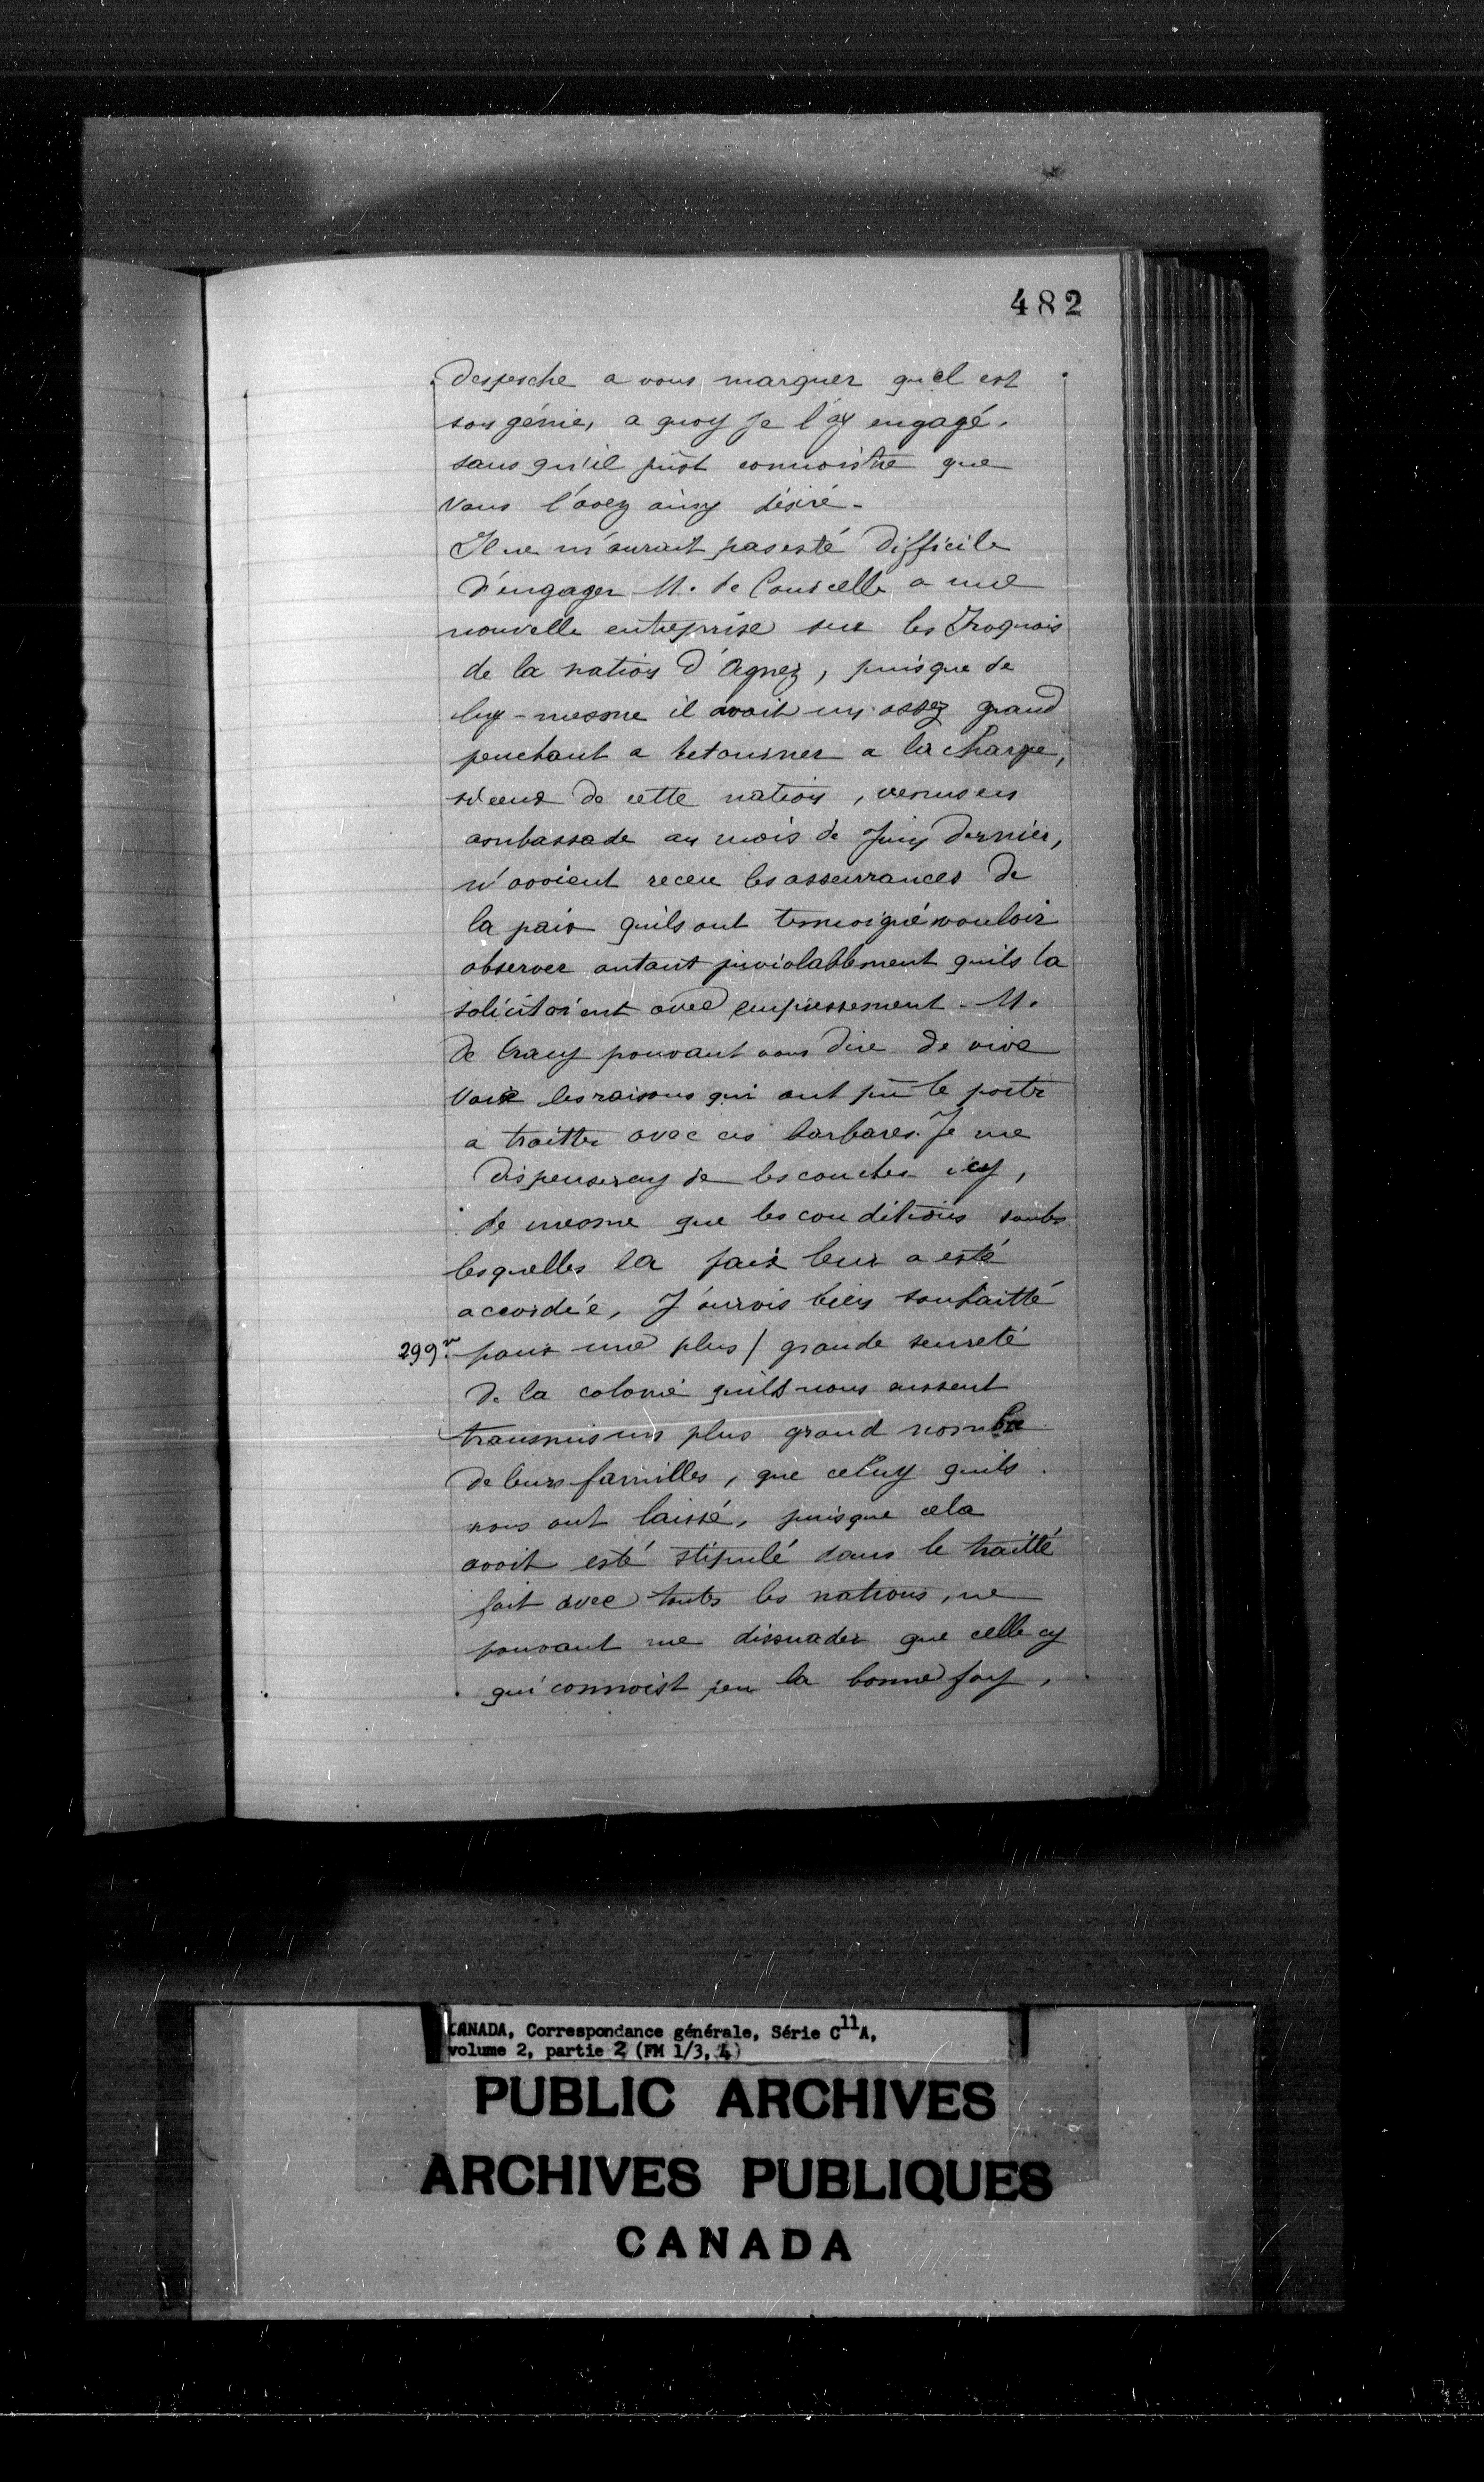 482
despesche a vous marquer quel est
son génie, a quoy je l'ay engagé.
sans qu'il pust connoistre que
vous l'avez ainsy désiré.
Il ne m'aurait pas esté difficile
d'engager M. de Courcelle a une
nouvelle entreprise sur les Iroquois
de la nation d'Agnez, puisque de
luy-mesme il avait un assez grand
penchant a retourner a la charge,
si ceux de cette nation, venus en
ambassade au mois de Juin dernier,
n'avoient receu les asseurrances de
la paix quils ont temoigné vouloir
observer autant inviolablement quils la
solicitoient avec empressement. M.
de Tracy pouvant vous dire de vive
voix les raisons qui ont pû le porter
a traitter avec ces barbares. Je me
dispenseray de les coucher icy,
de mesme que les conditions soubs
lesquelles la paix leur a esté
accordée, J'aurois bien souhaitté
299 v. pour une plus / grande seureté
de la colonie quils nous eussent
transmis un plus grand nombre
de leurs familles, que celuy quils
nous ont laissé, puisque cela
avoit esté stipulé dans le traitté
fait avec toutes les nations, ne
pouvant me dissuader que celle cy
qui connoist peu la bonne foy,
CANADA, Correspondance générale, Série C11A,
volume 2, partie 2 (FM 1/3, 4)
PUBLIC ARCHIVES
ARCHIVES PUBLIQUES
CANADA